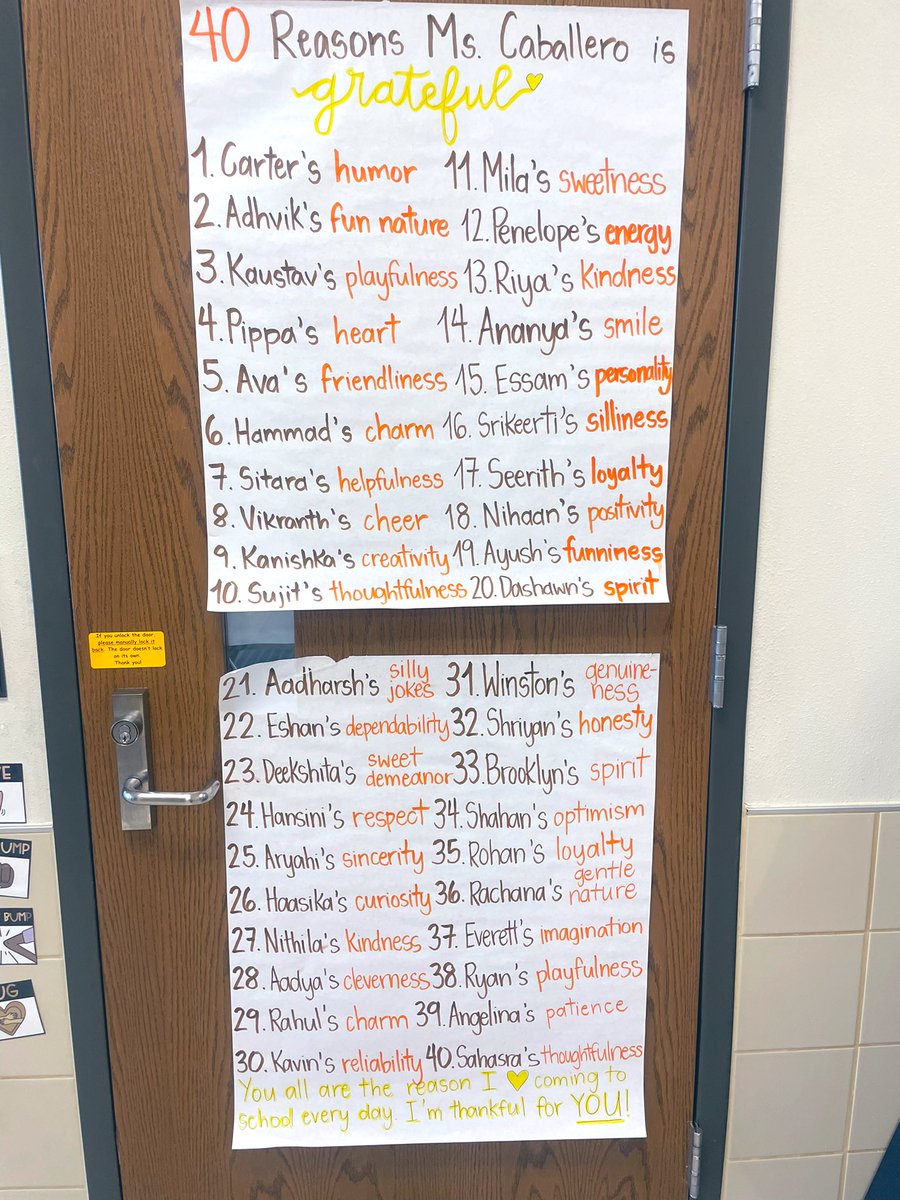 40 Reasons Ms. Caballero is
grateful
1. Carter's humor
2. Adhvik's fun nature
3. Kaustav's playfulness
4. Pippa's heart
5. Ava's friendliness
6. Hammad's charm
7. Sitara's helpfulness
8. Vikranth's cheer
9. Kanishka's creativity
10. Sujit's thoughtfulness
11. Mila's sweetness
12. Penelope's energy
13. Riya's kindness
14. Ananya's smile
15. Essam's personality
16. Srikeerti's silliness
17. Seerith's loyalty
18. Nihaan's positivity
19. Ayush's funniness
20. Dashawn's spirit
If you unlock the door,
please manually lock it
back. The door doesn't lock
on its own.
Thank you!
21. Aadharsh's silly
jokes
22. Eshan's dependability
23. Deekshita's sweet
demeanor
24. Hansini's respect
25. Aryahi's sincerity
26. Haasika's curiosity
27. Nithila's kindness
28. Aadya's cleverness
29. Rahul's charm
30. Kavin's reliability
31. Winston's genuine-
ness
32. Shriyan's honesty
33. Brooklyn's spirit
34. Shahan's optimism
35. Rohan's loyalty
36. Rachana's gentle
nature
37. Everett's imagination
38. Ryan's playfulness
39. Angelina's patience
40. Sahasra's thoughtfulness
You all are the reason I coming to
school every day. I'm thankful for YOU!
BUMP